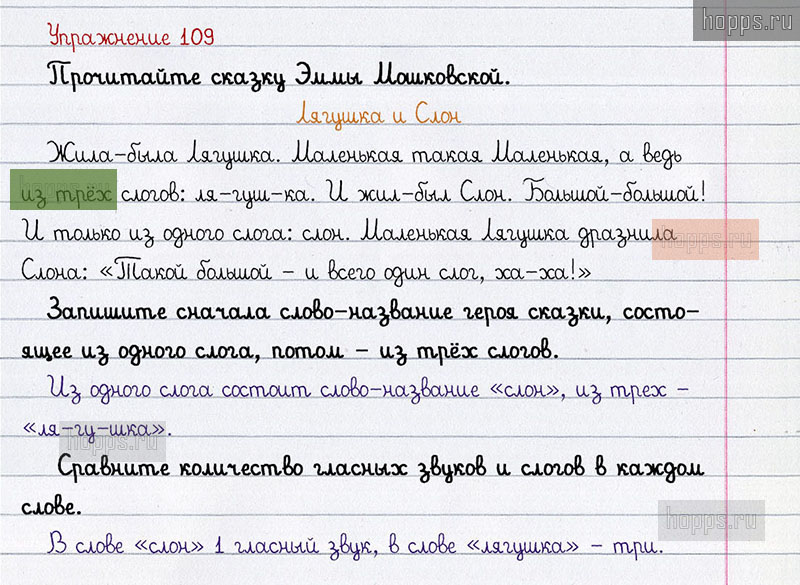 hopps.ru
Упражнение 109
Прочитайте сказку Эммы Мошковской.
Лягушка и Слон
Жила-была Лягушка. Маленькая такая Маленькая, а ведь
из трёх слогов: ля-гуш-ка. И жил-был Слон. Большой-большой!
И только из одного слога: слон. Маленькая Лягушка дразнила
hopps.ru
Слона: «Такой большой – и всего один слог, ха-ха!»
Запишите сначала слово-название героя сказки, состо-
ящее из одного слога, потом – из трёх слогов.
Из одного слога состоит слово-название «слон», из трех –
«ля-гу-шка».
hopps.ru
Сравните количество гласных звуков и слогов в каждом
слове.
hopps.ru
В слове «слон» 1 гласный звук, в слове «лягушка» – три.